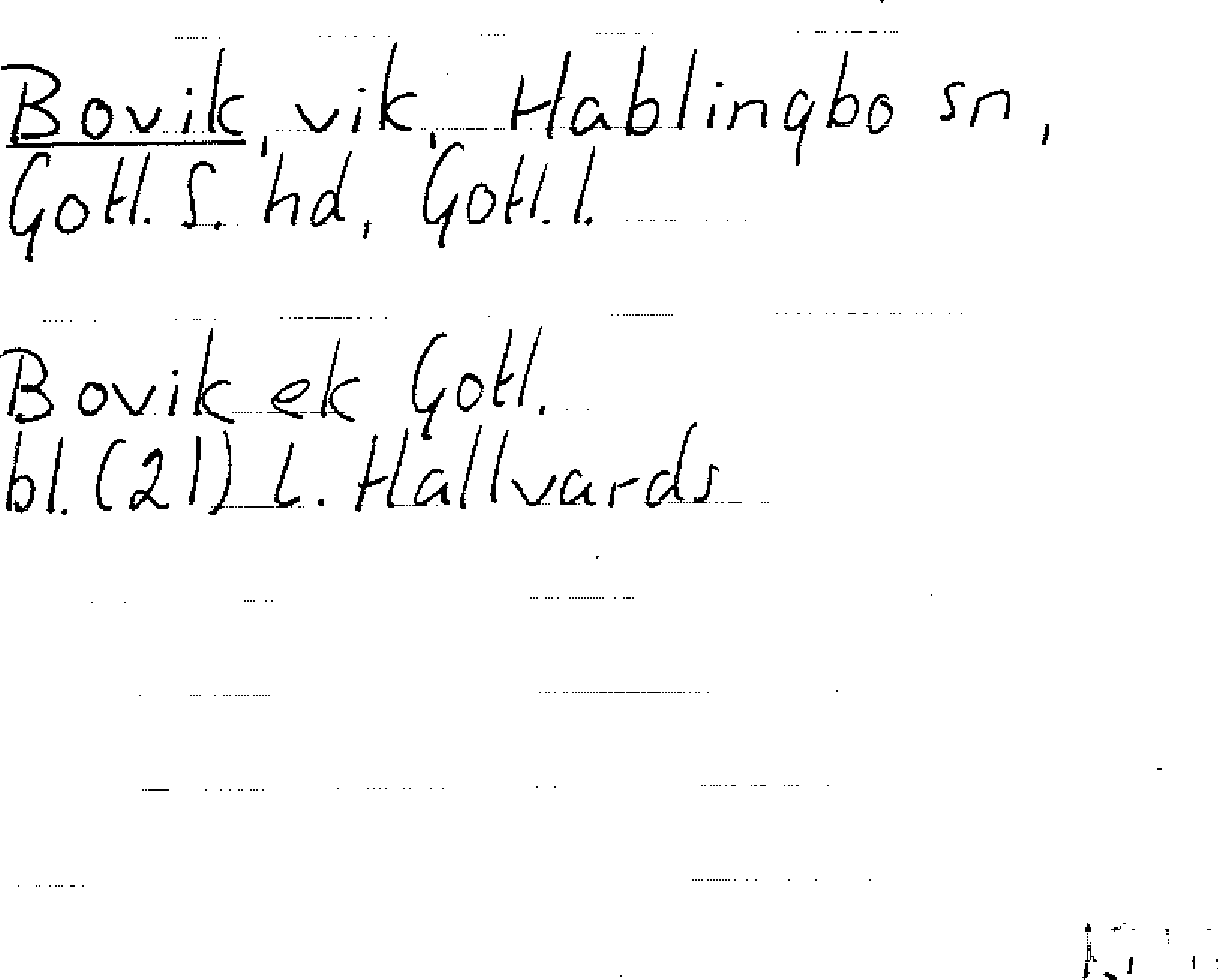 Bovik, vik, Hablingbo sn,
Gotl. S. hd, Gotl. l.
Bovik ek Gotl.
bl. (21) L. Hallvards